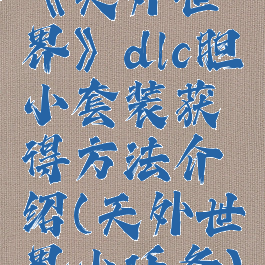 《天外世
界》dlc胆
小套装获
得方法介
绍(天外世